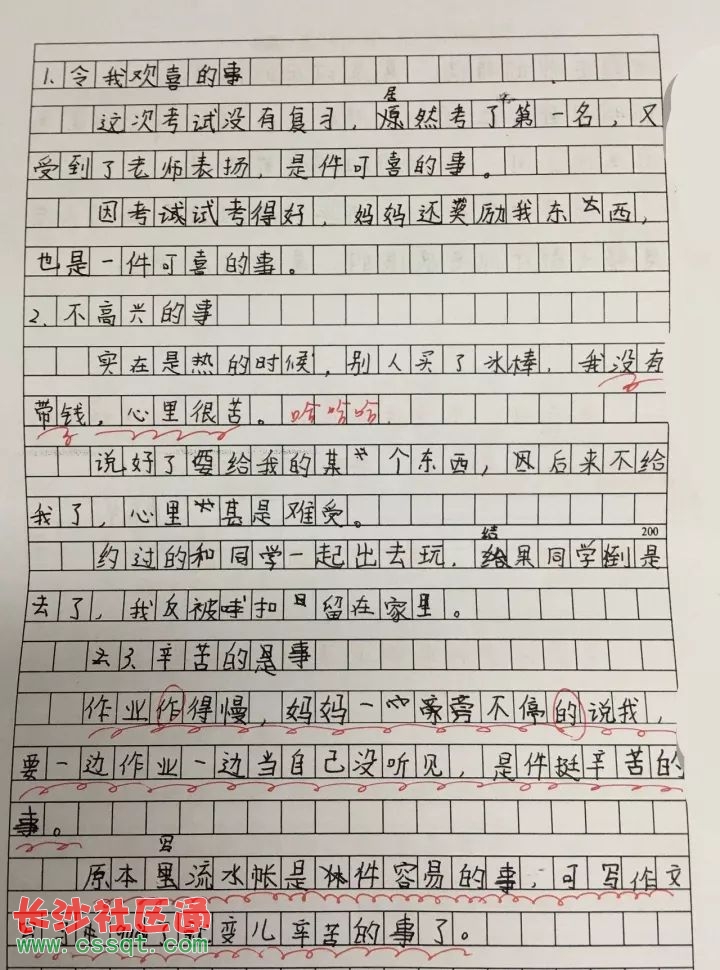 1.令我欢喜的事
这次考试没有复习，居然考了第一名，又
受到了老师表扬，是件可喜的事。
因考试考得好，妈妈还奖励我东西，
也是一件可喜的事。
2.不高兴的事
实在是热的时候，别人买了冰棒，我没有
带钱，心里很苦。哈哈哈
说好了要给我的某个东西，因后来不给
我了，心里甚是难受。
200
约过的和同学一起出去玩，结果同学倒是
去了，我反被扣留在家里。
3、辛苦的事
作业作得慢，妈妈一旁不停的说我，
要一边作业一边当自己没听见，是件挺辛苦的
事。
原本写流水帐是件容易的事，可写作文
变儿辛苦的事了。
长沙社区通
www.cssqt.com